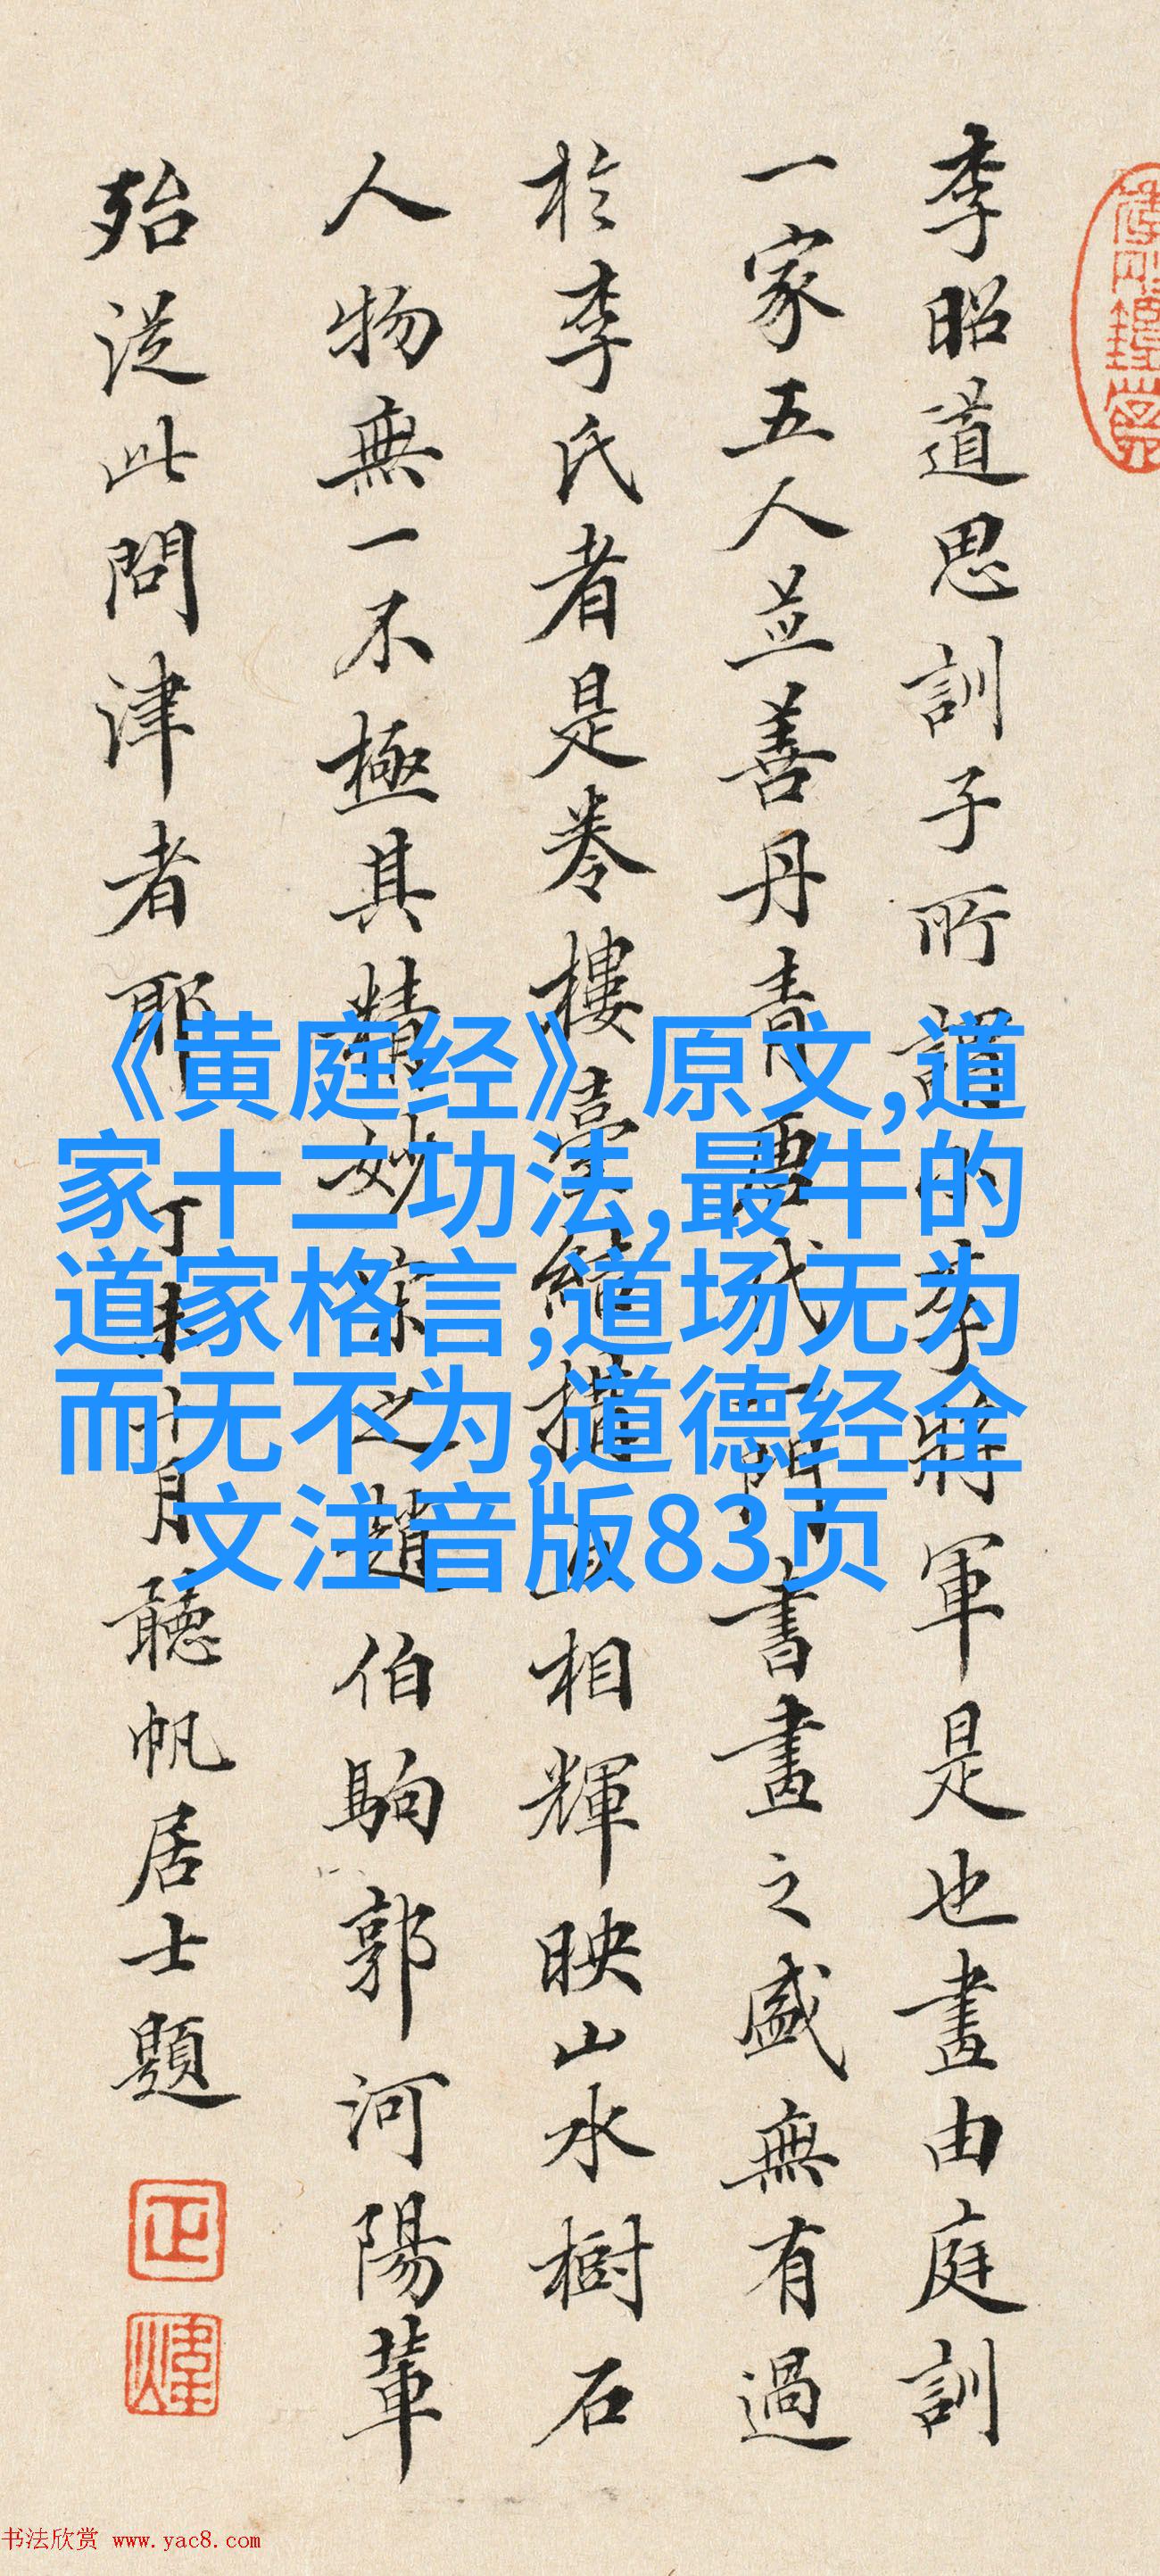 李昭道思訓子所謂小李將軍是也畫由庭訓
一家五人並善丹青唐代一門書畫之盛無有過
於李氏者是卷樓臺結構與相輝映山水樹石
人物無一不極其精妙宗之趙伯駒郭河陽輩
殆從此問津者耶 丁未十月聽帆居士題
《黄庭经》原文,道
家十二功法,最牛的
道家格言,道场无为
而无不为,道德经全
文注音版83页
书法欣赏 www.yac8.com